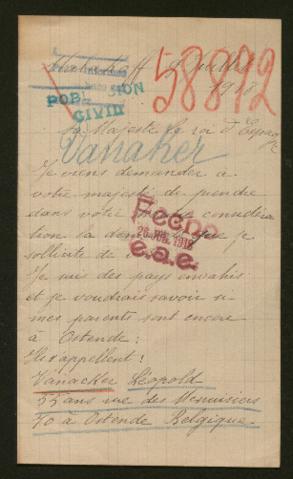 Juillet
58892
1918
POB ION
CIVIL
Sa Majesté le roi d'Espagne
Vanaker
Je viens demander à
votre majesté de prendre
dans votre considéra
tion la demande que je
sollicite de
Je suis des pays envahis
et je voudrais savoir si
mes parents sont encore
à Ostende:
Ils s'appellent:
Vanacker Léopold
55 ans rue des Menuisiers
70 à Ostende Belgique.
1918
e.a.e.